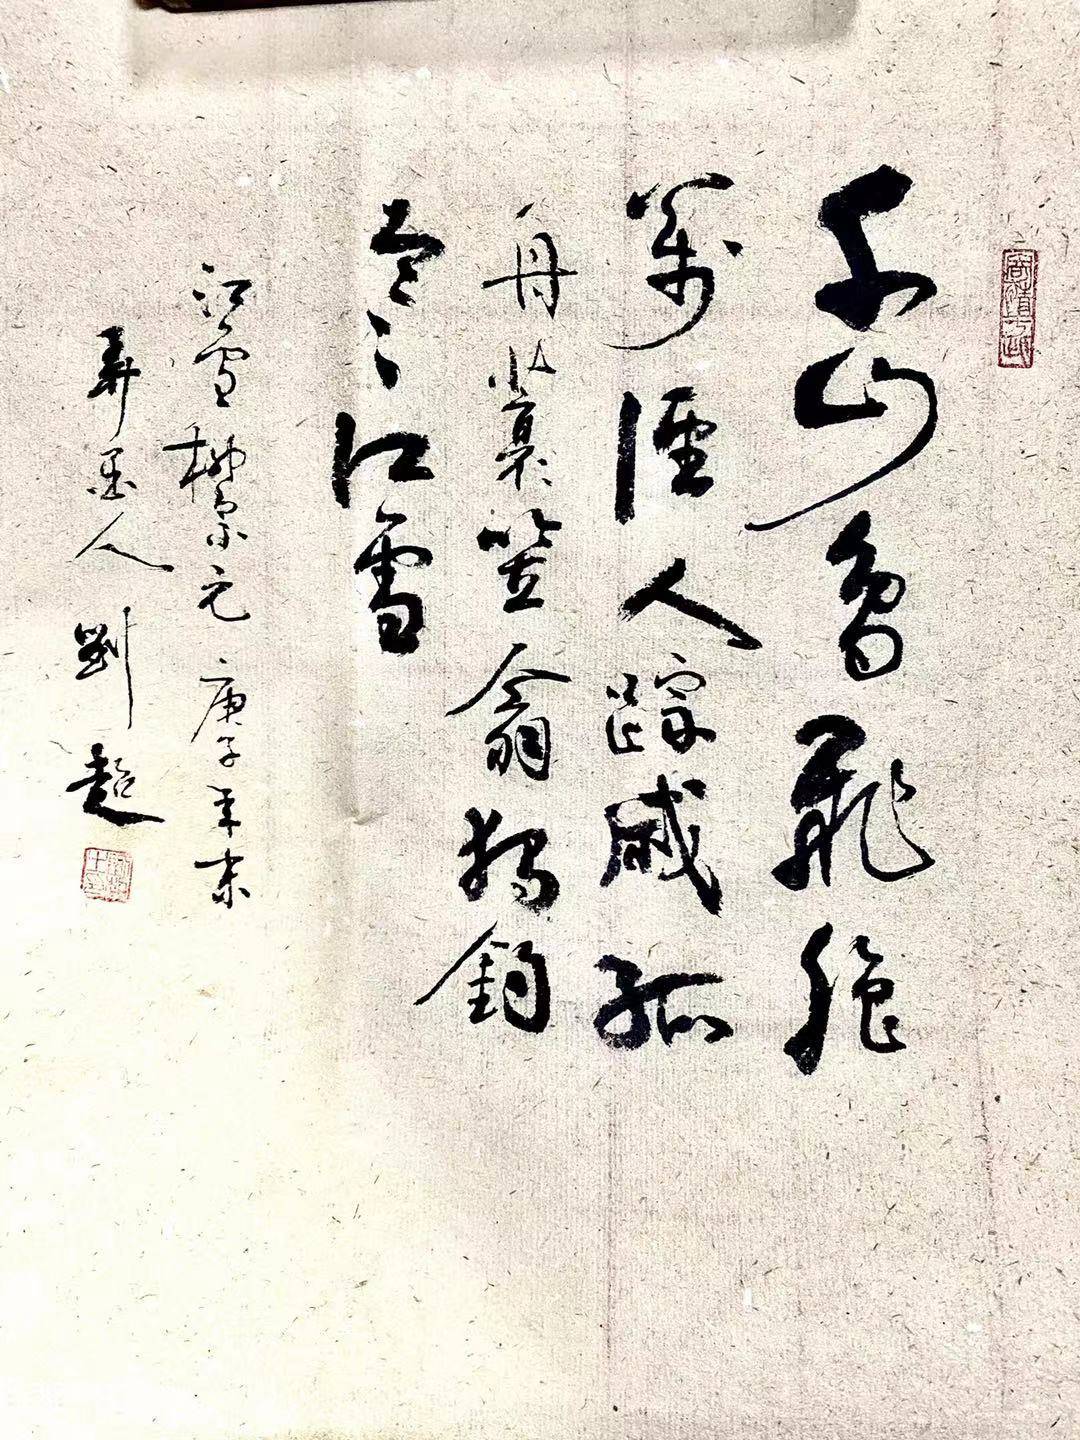 千山鳥飛絶
萬徑人踪滅孤
舟蓑笠翁獨釣
寒江雪
江雪柳宗元庚子年末
弄墨人劉超